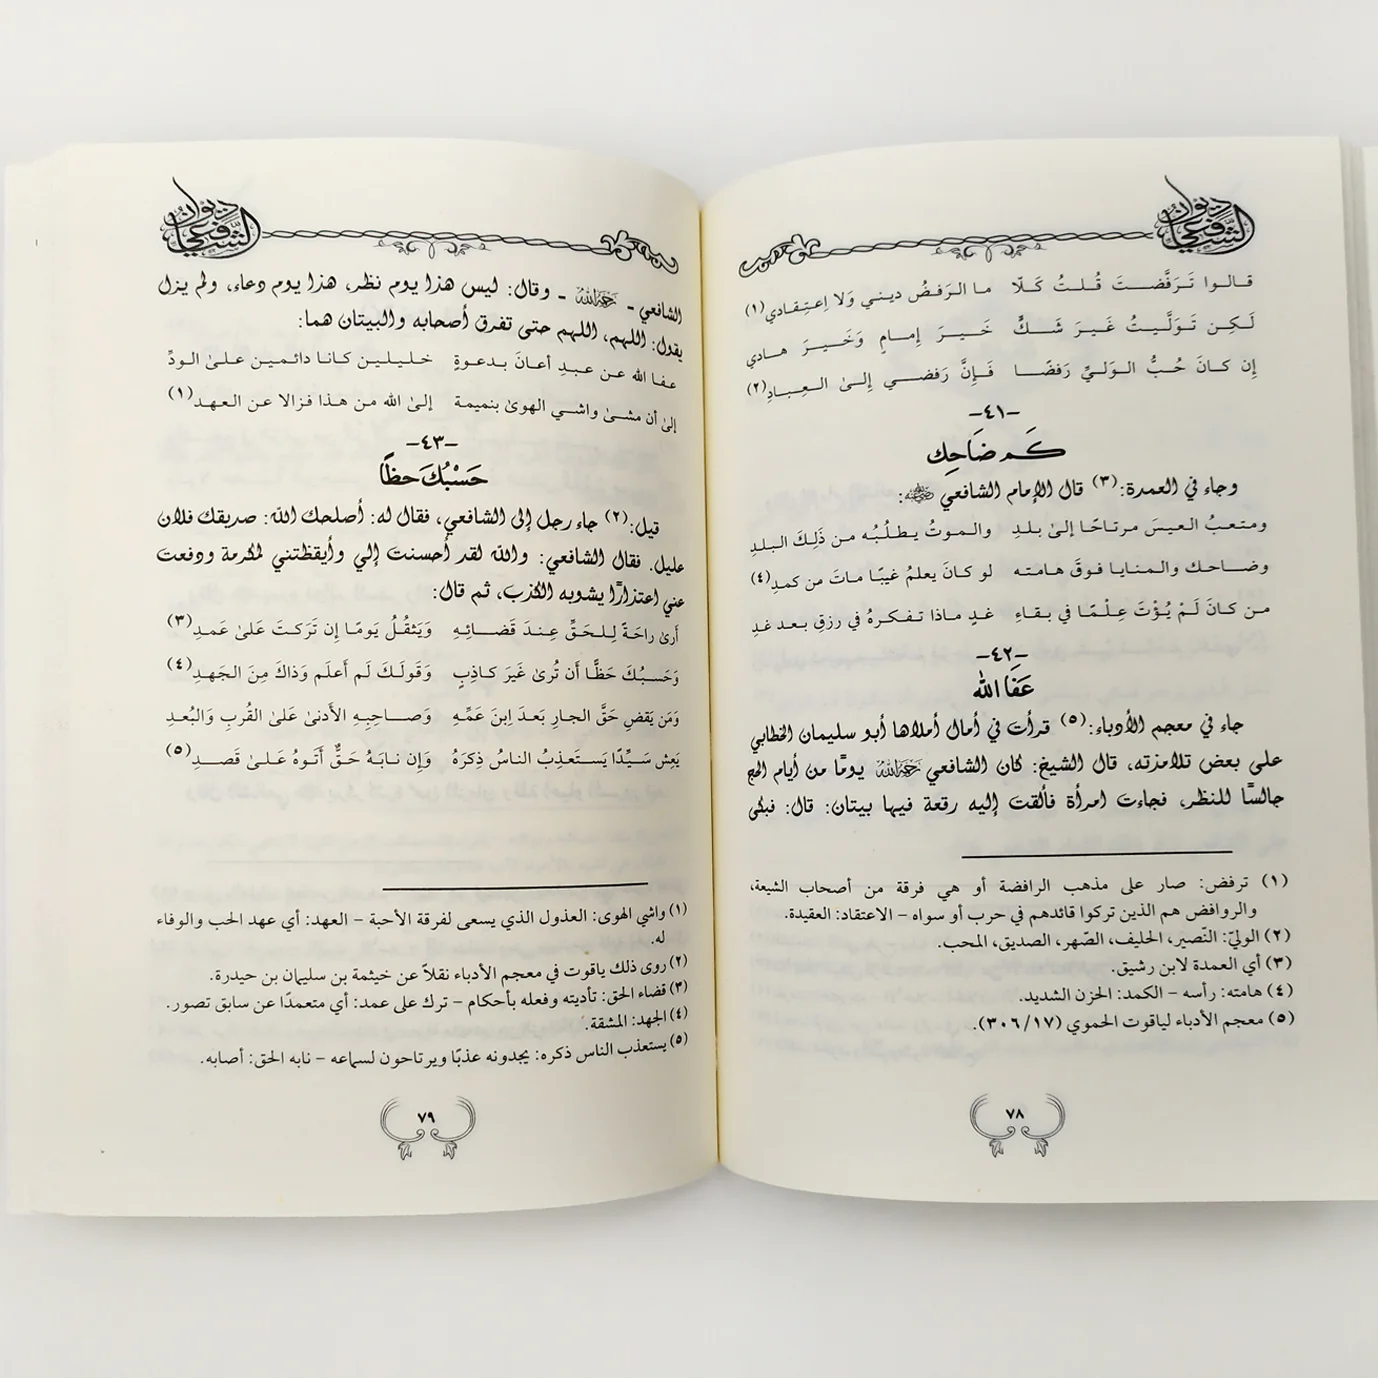 ديوان الشافعي
قالوا تَرَفَّضتَ قُلتُ كَلّا ما الرَفضُ ديني وَلا اِعتِقادي(١)
لَكِن تَوَلَّيتُ غَيرَ شَكٍّ خَيرَ إِمامٍ وَخَيرَ هادي
إِن كانَ حُبُّ الوَليِّ رَفضًا فَإِنَّ رَفضي إِلىٰ العِبادِ(٢)
-٤١-
كَم ضَاحِك
وجاء في العمدة:(٣) قال الإمام الشافعي رضي الله عنه:
ومتعبُ العيسَ مرتاحًا إلىٰ بلدِ والموتُ يطلُبُه من ذَلِكَ البلدِ
وضاحك والمنايا فوقَ هامته لو كانَ يعلمُ غيبًا ماتَ من كمدِ(٤)
من كانَ لَمْ يُؤْتَ عِلْمًا في بقاءِ غدٍ ماذا تفكرهُ في رزقِ بعد غدِ
-٤٢-
عَفَا الله
جاء في معجم الأدباء:(٥) قرأت في أمال أملاها أبو سليمان الخطابي
على بعض تلامذته، قال الشيخ: كان الشافعي رحمه الله يومًا من أيام الحج
جالسًا للنظر، فجاءت امرأة فألقت إليه رقعة فيها بيتان: قال: فبكى
(١) ترفض: صار على مذهب الرافضة أو هي فرقة من أصحاب الشيعة،
والروافض هم الذين تركوا قائدهم في حرب أو سواه – الاعتقاد: العقيدة.
(٢) الوليّ: النّصير، الحليف، الصّهر، الصديق، المحب.
(٣) أي العمدة لابن رشيق.
(٤) هامته: رأسه – الكمد: الحزن الشديد.
(٥) معجم الأدباء لياقوت الحموي (٣٠٦/١٧).
٧٨
ديوان الشافعي
الشافعي - رحمه الله - وقال: ليس هذا يوم نظر، هذا يوم دعاء، ولم يزل
يقول: اللهم، اللهم حتى تفرق أصحابه والبيتان هما:
عفا الله عن عبدِ أعانَ بدعوةٍ خليلين كانا دائمين علىٰ الودِّ
إلىٰ أن مشىٰ واشي الهوىٰ بنميمة إلىٰ الله من هذا فزالا عن العهد(١)
-٤٣-
حَسْبُكَ حظًا
قيل:(٢) جاء رجل إلى الشافعي، فقال له: أصلحك الله: صديقك فلان
عليل. فقال الشافعي: والله لقد أحسنت إلي وأيقظتني لمكرمة ودفعت
عني اعتذارًا يشوبه الكذب، ثم قال:
أَرىٰ راحَةً لِلحَقِّ عِندَ قَضائِهِ وَيَثقُلُ يَومًا إِن تَرَكتَ عَلىٰ عَمدِ(٣)
وَحَسبُكَ حَظًّا أَن تُرىٰ غَيرَ كاذِبٍ وَقَولَكَ لَم أَعلَم وَذاكَ مِنَ الجَهدِ(٤)
وَمَن يَقضِ حَقَّ الجارِ بَعدَ اِبنَ عَمِّهِ وَصاحِبِهِ الأَدنىٰ عَلىٰ القُربِ وَالبُعدِ
يَعِش سَيِّدًا يَستَعذِبُ الناسُ ذِكرَهُ وَإِن نابَهُ حَقٌّ أَتَوهُ عَلىٰ قَصدِ(٥)
(١) واشي الهوى: العذول الذي يسعى لفرقة الأحبة – العهد: أي عهد الحب والوفاء
له.
(٢) روى ذلك ياقوت في معجم الأدباء نقلاً عن خيثمة بن سليمان بن حيدرة.
(٣) قضاء الحق: تأديته وفعله بأحكام – ترك على عمد: أي متعمدًا عن سابق تصور.
(٤) الجهد: المشقة.
(٥) يستعذب الناس ذكره: يجدونه عذبًا ويرتاحون لسماعه – نابه الحق: أصابه.
٧٩